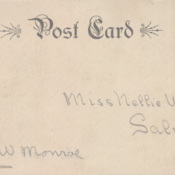 Post Card
Miss Nellie
Sal
W Monroe